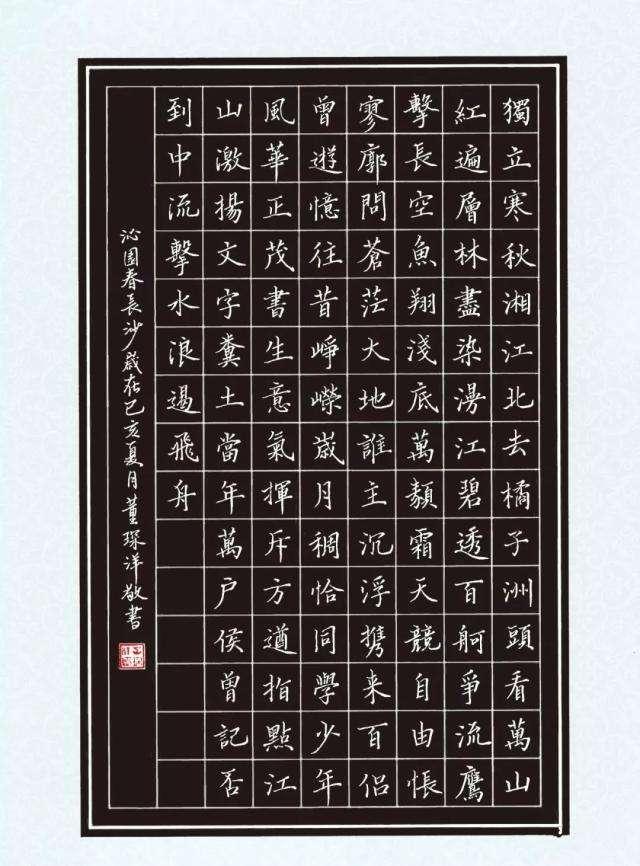 獨立寒秋湘江北去橘子洲頭看萬山
紅遍層林盡染漫江碧透百舸爭流鷹
擊長空魚翔淺底萬類霜天競自由悵
寥廓問蒼茫大地誰主沉浮携来百侶
曾遊憶往昔崢嶸歲月稠恰同學少年
風華正茂書生意氣揮斥方遒指點江
山激揚文字糞土當年萬户侯曾記否
到中流擊水浪遏飛舟
沁園春長沙歲在己亥夏月董琛洋敬書